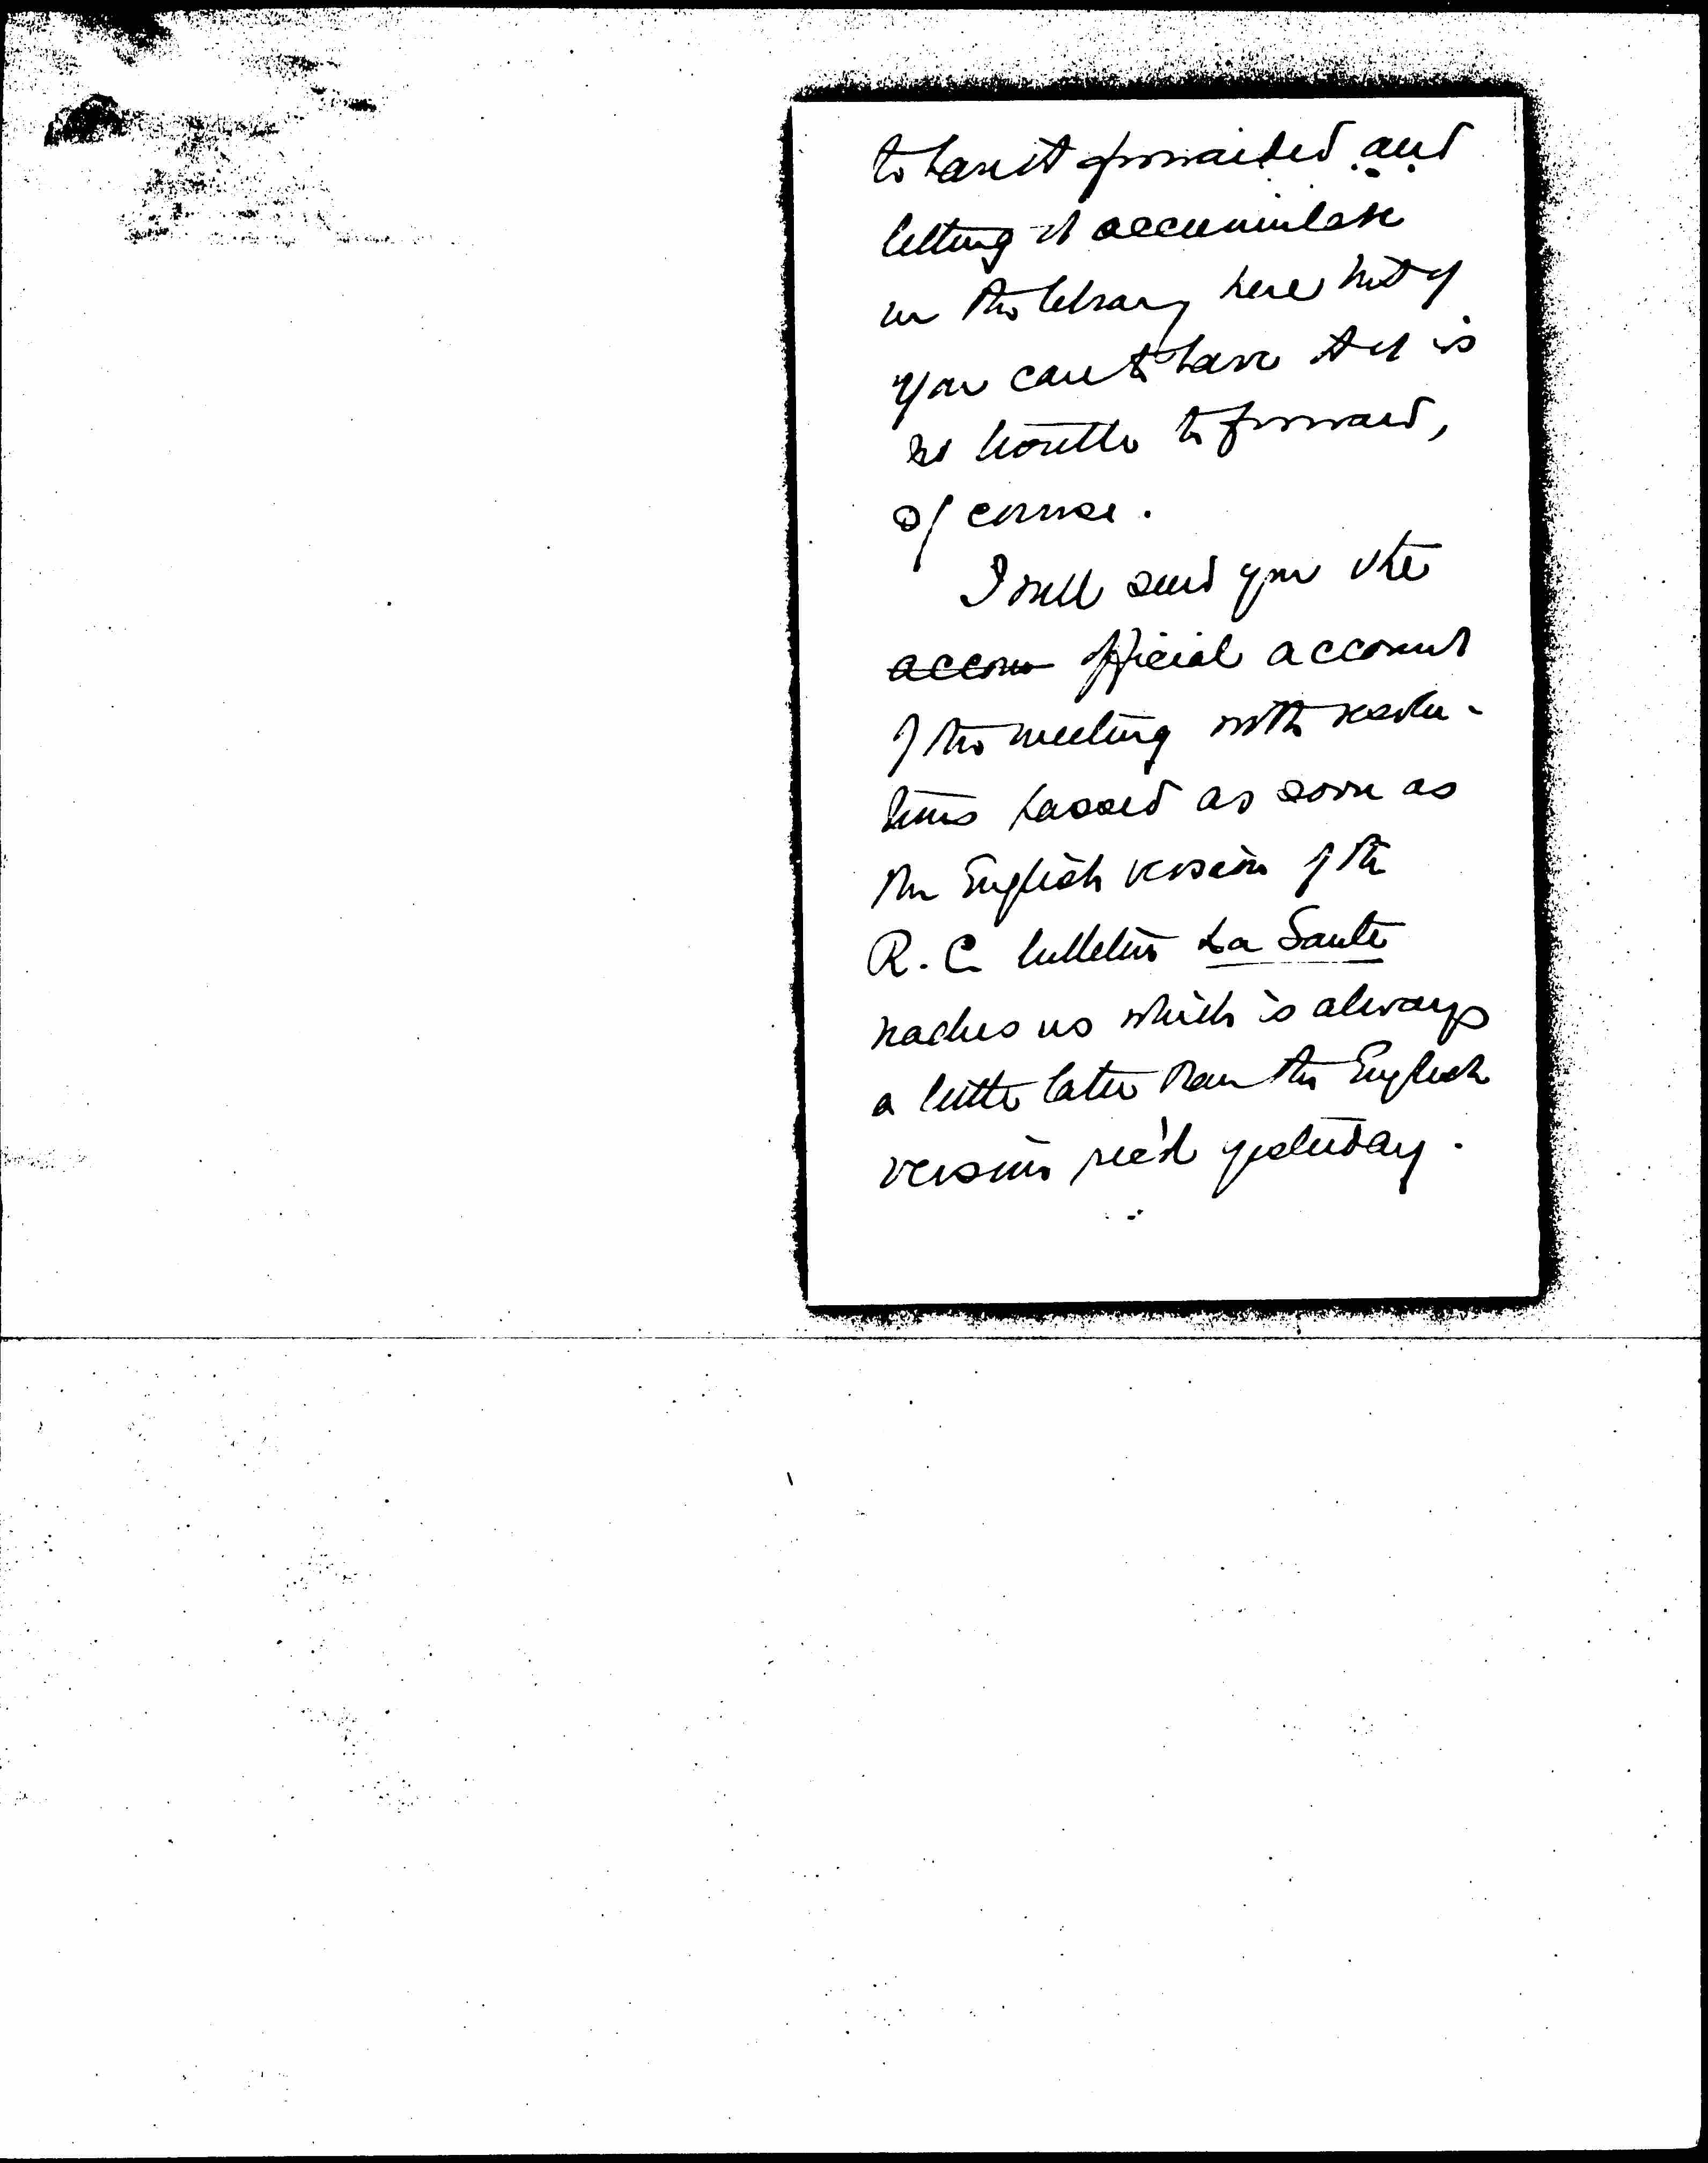 to have it forwarded and
letting it accumulate
in the library here but if
you can't have it it is
no trouble to forward,
of course.
I will send you the
accou official account
of the meeting with resolu-
tions passed as soon as
the English version of the
R. C. bulletin La Sante
reaches us which is always
a little later than the English
version rec'd yesterday.